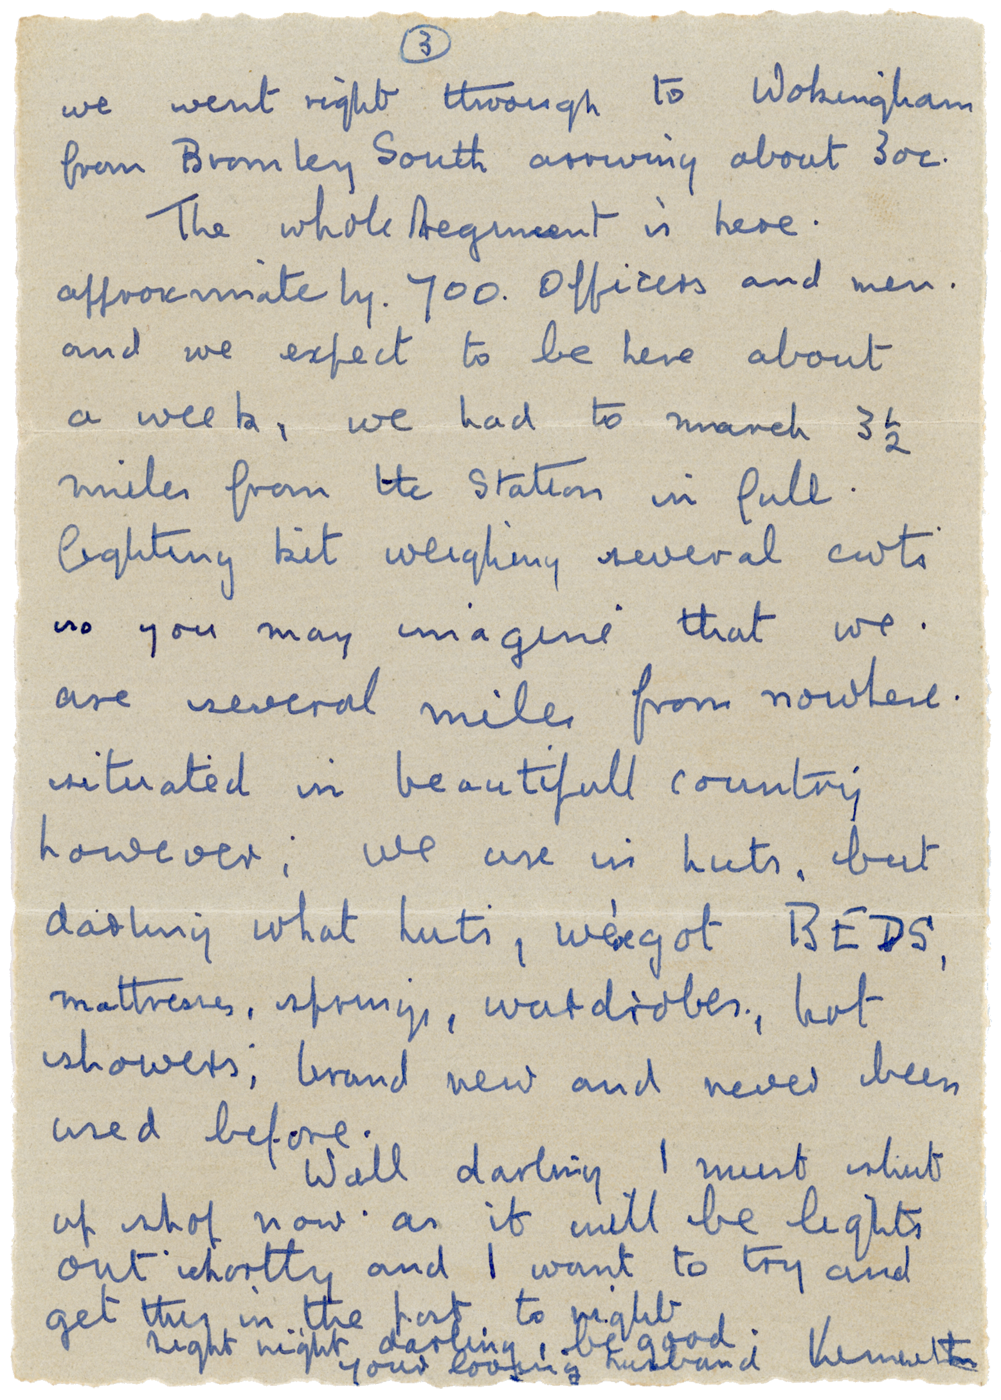 3
we went right through to Wokingham
from Bromley South arriving about 3oc.
The whole Regiment is here.
approximately. 700. Officers and men.
and we expect to be here about
a week, we had to march 3½
miles from the Station in full.
fighting kit weighing several cwts
so you may imagine that we.
are several miles from nowhere.
situated in beautifull country
however; we are in huts, but
darling what huts, we've got BEDS,
mattresses, springs, wardrobes, hot
showers; brand new and never been
used before.
Well darling I must shut
up shop now as it will be lights
out shortly and I want to try and
get this in the post to night
night night darling, be good.
your loving husband Kenneth